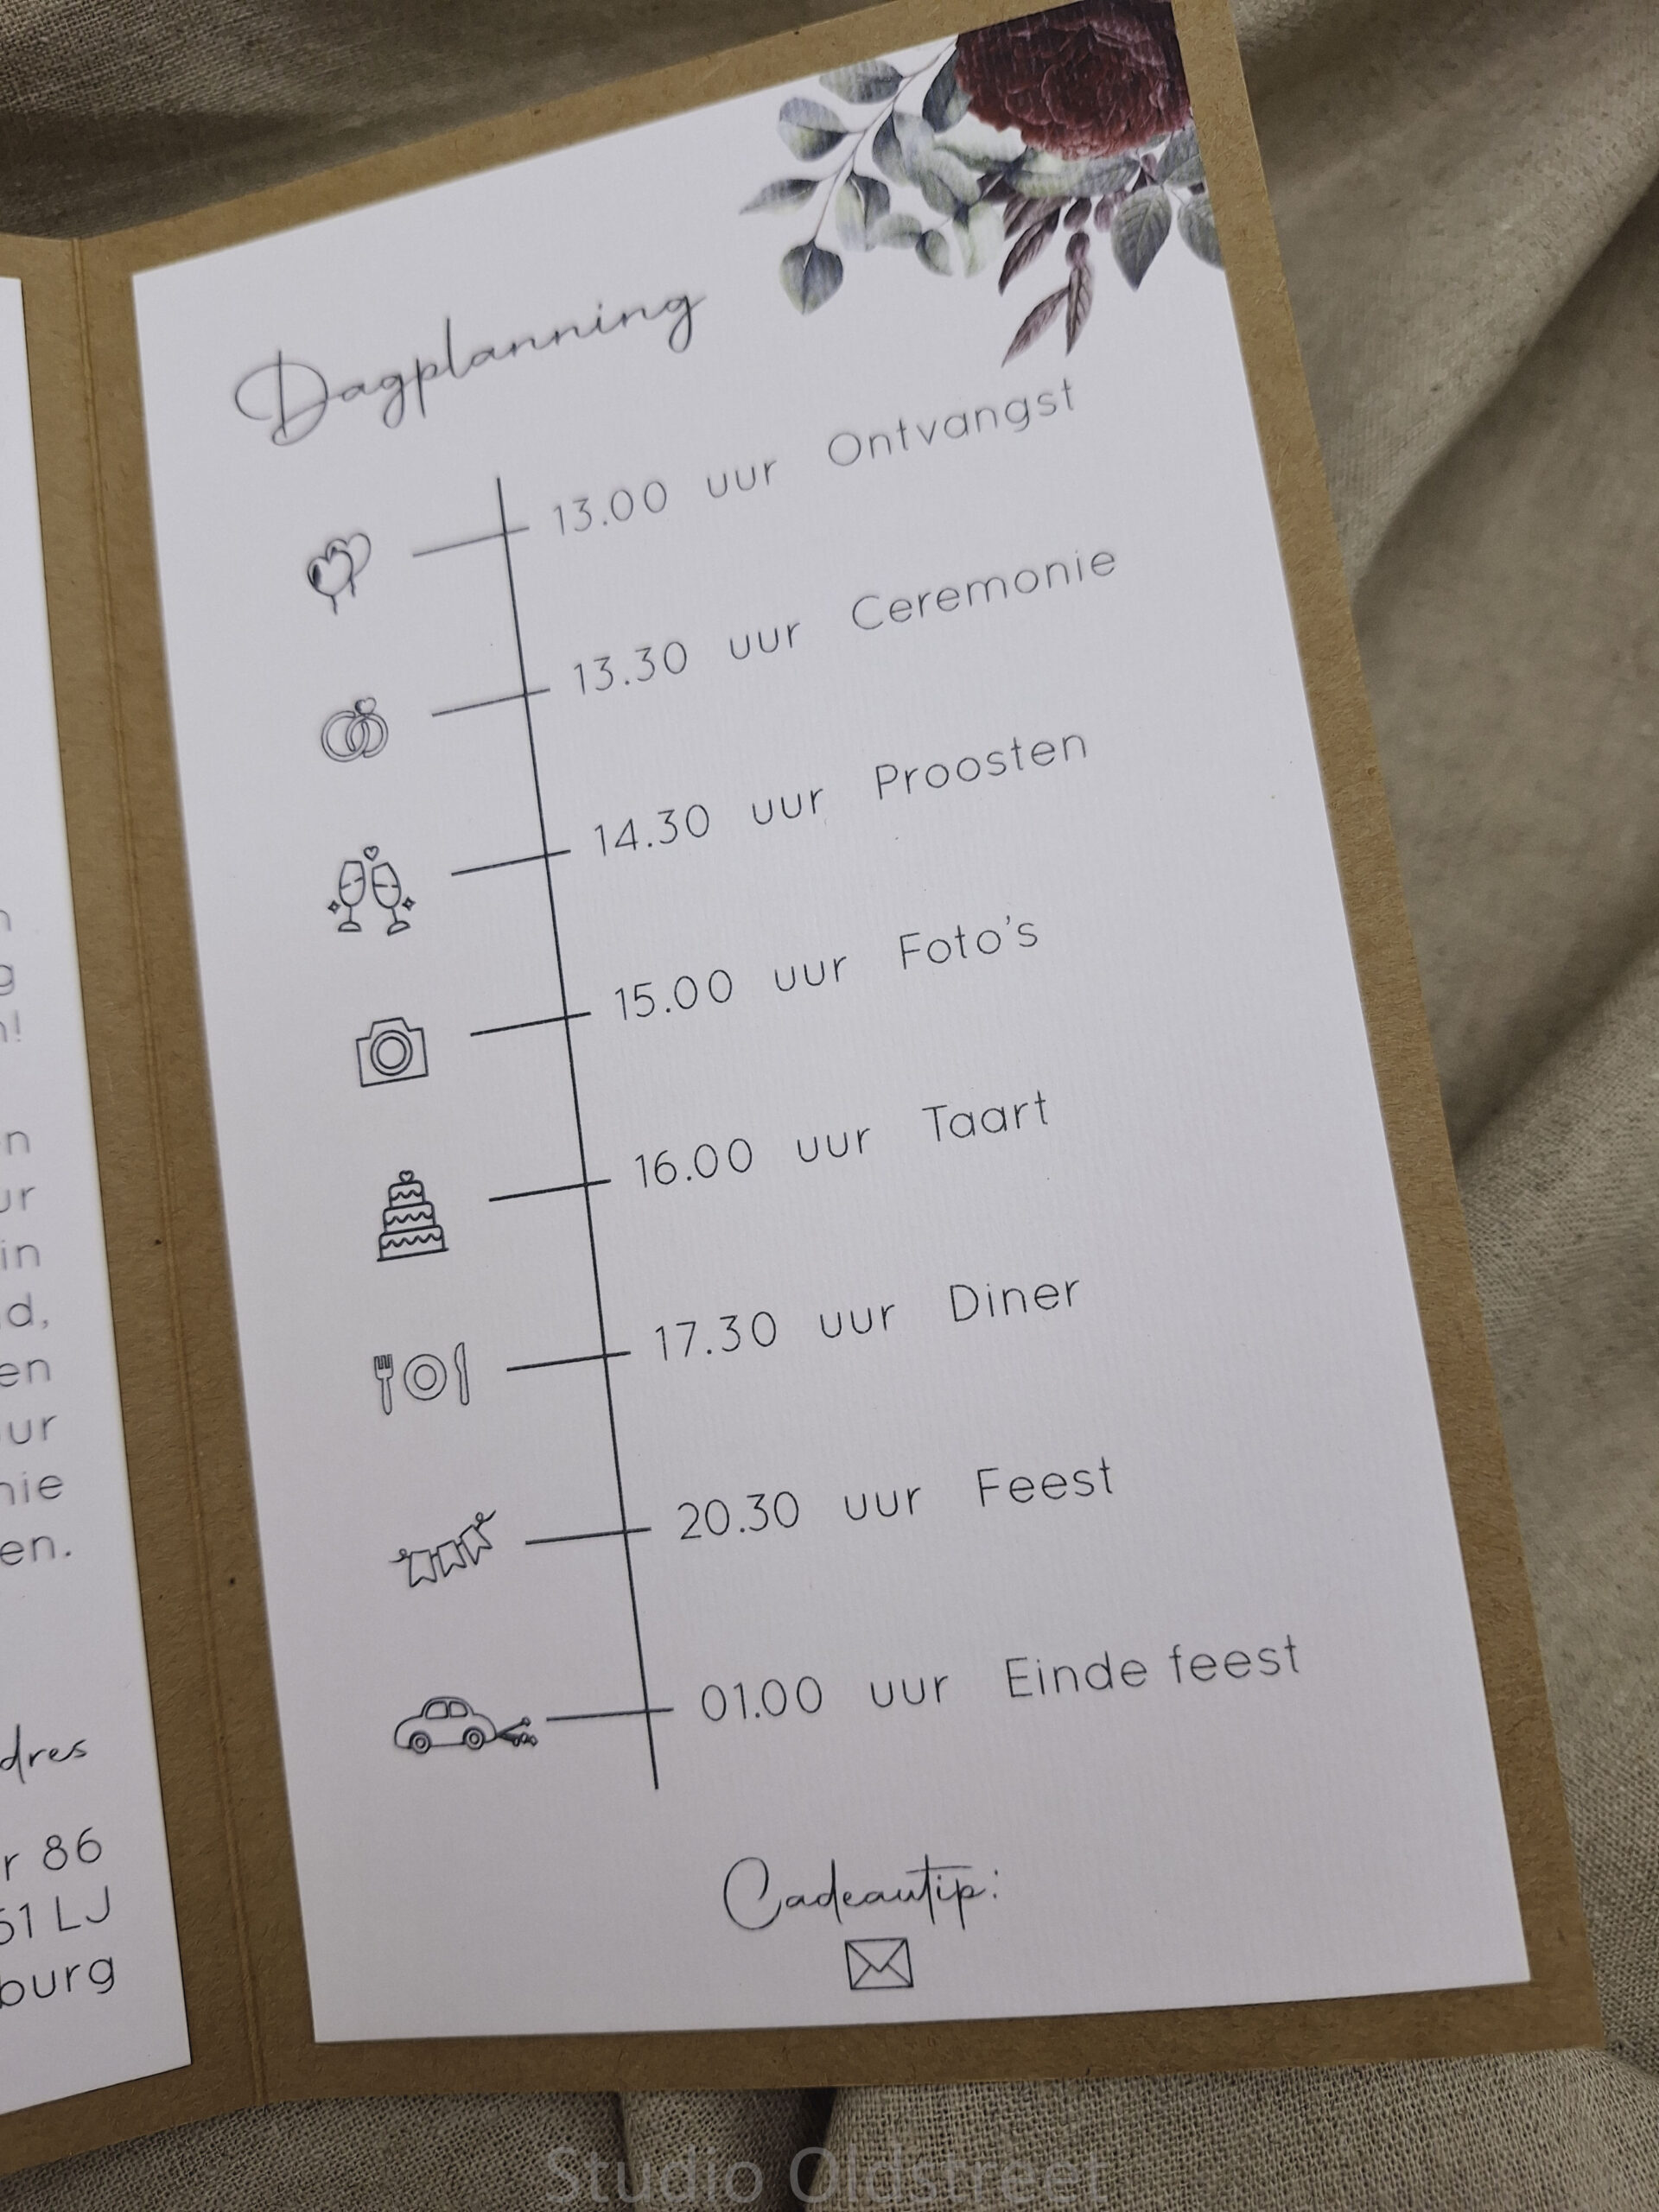 n
g
n!
n
ur
in
d,
en
ur
nie
en.
dres
r 86
51 LJ
burg
Dagplanning
13.00 uur Ontvangst
13.30 uur Ceremonie
14.30 uur Proosten
15.00 uur Foto's
16.00 uur Taart
17.30 uur Diner
20.30 uur Feest
01.00 uur Einde feest
Cadeautip:
Studio Oldstreet